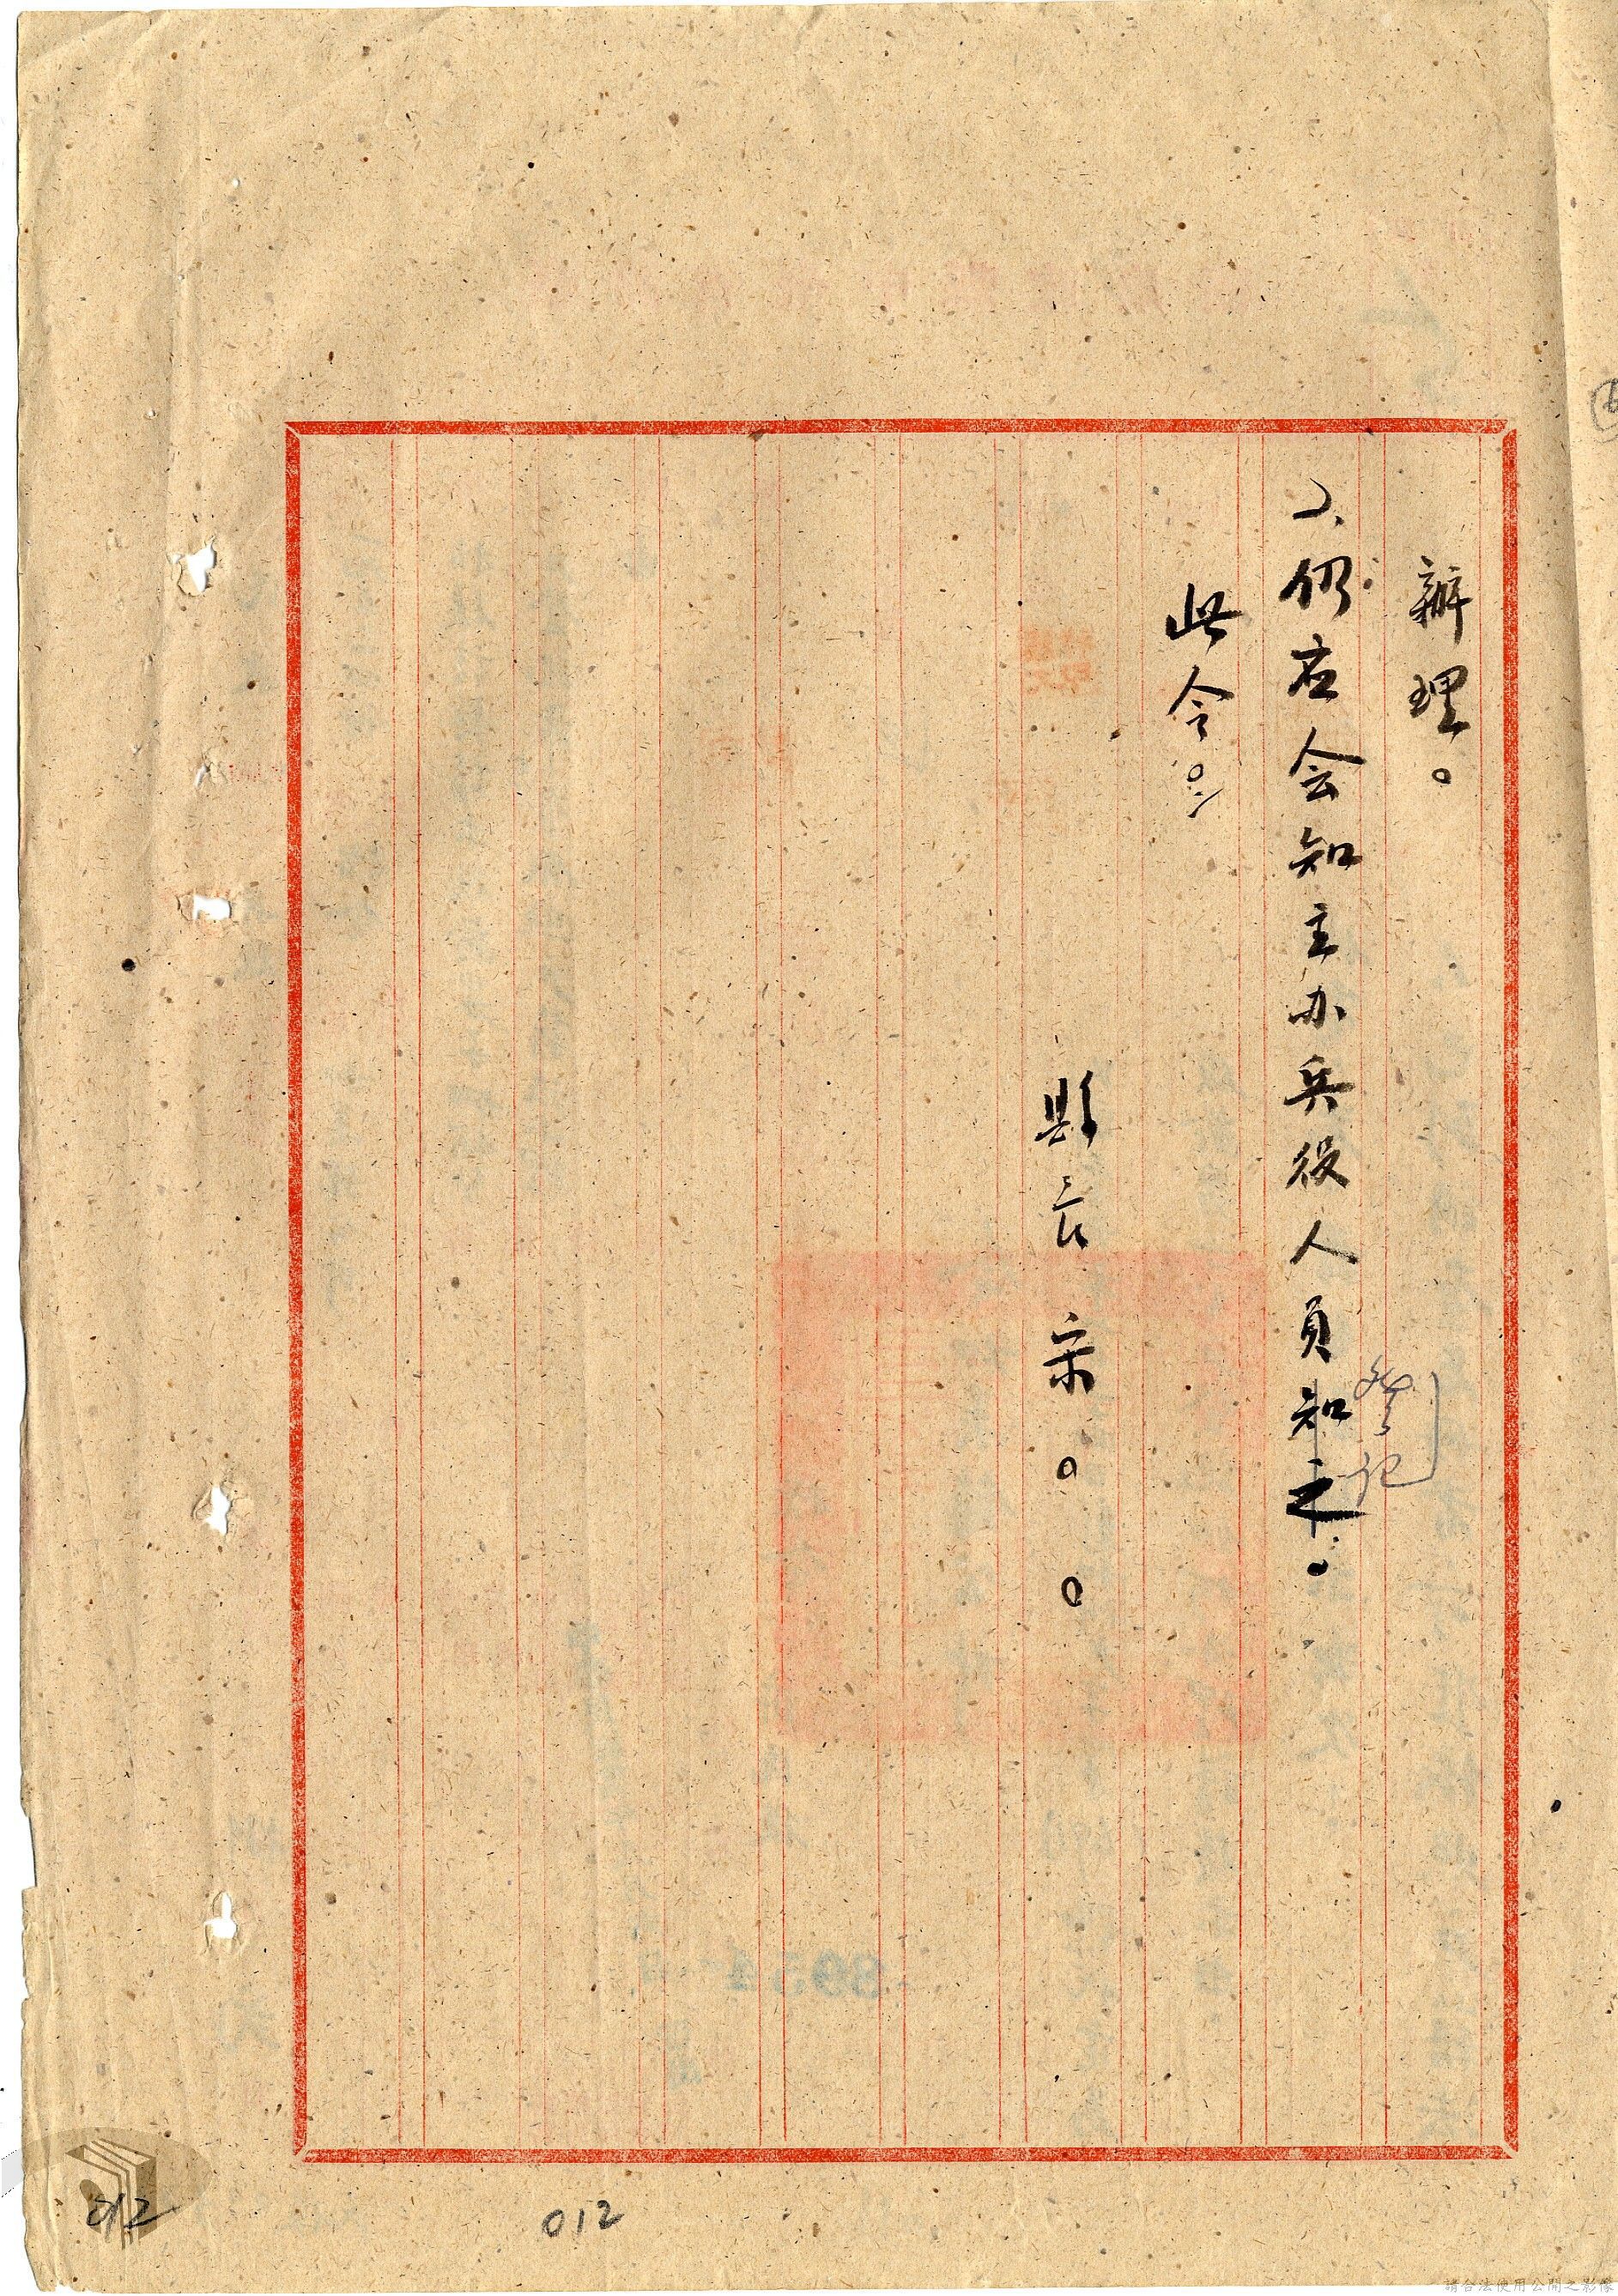 辦理。
2、仍应会知主办兵役人員知之。
登記
此令。
縣長宋○○
012
012
請合法使用公開之影像